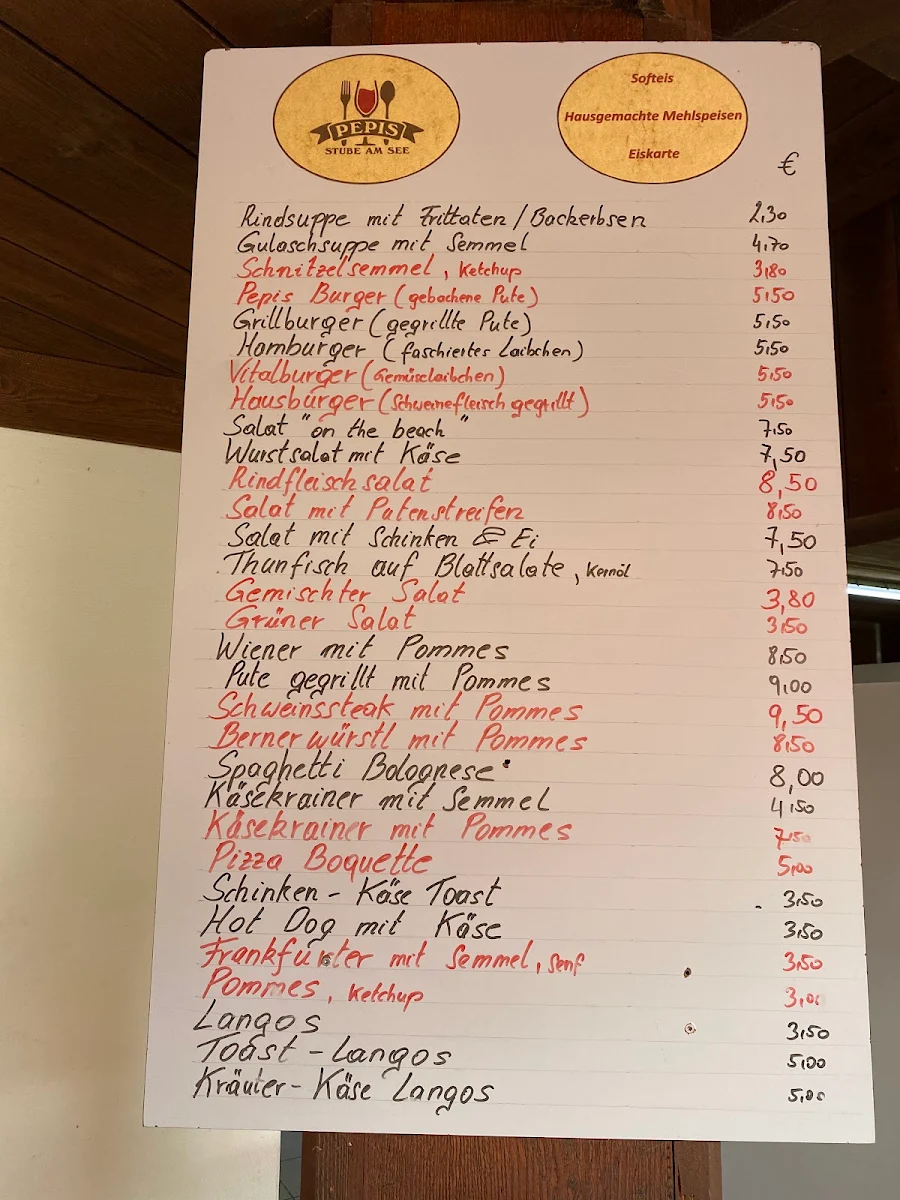 PEPIS
STUBE AM SEE
Softeis
Hausgemachte Mehlspeisen
Eiskarte
€
Rindsuppe mit Frittaten / Backerbsen 2,30
Gulaschsuppe mit Semmel 4,70
Schnitzelsemmel, Ketchup 3,80
Pepis Burger (gebackene Pute) 5,50
Grillburger (gegrillte Pute) 5,50
Hamburger (faschiertes Laibchen) 5,50
Vitalburger (Gemüselaibchen) 5,50
Hausburger (Schweinefleisch gegrillt) 5,50
Salat "on the beach" 7,50
Wurstsalat mit Käse 7,50
Rindfleischsalat 8,50
Salat mit Putenstreifen 8,50
Salat mit Schinken & Ei 7,50
Thunfisch auf Blattsalate, Kernöl 7,50
Gemischter Salat 3,80
Grüner Salat 3,50
Wiener mit Pommes 8,50
Pute gegrillt mit Pommes 9,00
Schweinssteak mit Pommes 9,50
Berner würstl mit Pommes 8,50
Spaghetti Bolognese 8,00
Käsekrainer mit Semmel 4,50
Käsekrainer mit Pommes 7,50
Pizza Baquette 5,00
Schinken - Käse Toast 3,50
Hot Dog mit Käse 3,50
Frankfurter mit Semmel, Senf 3,50
Pommes, Ketchup 3,00
Langos 3,50
Toast - Langos 5,00
Kräuter - Käse Langos 5,00